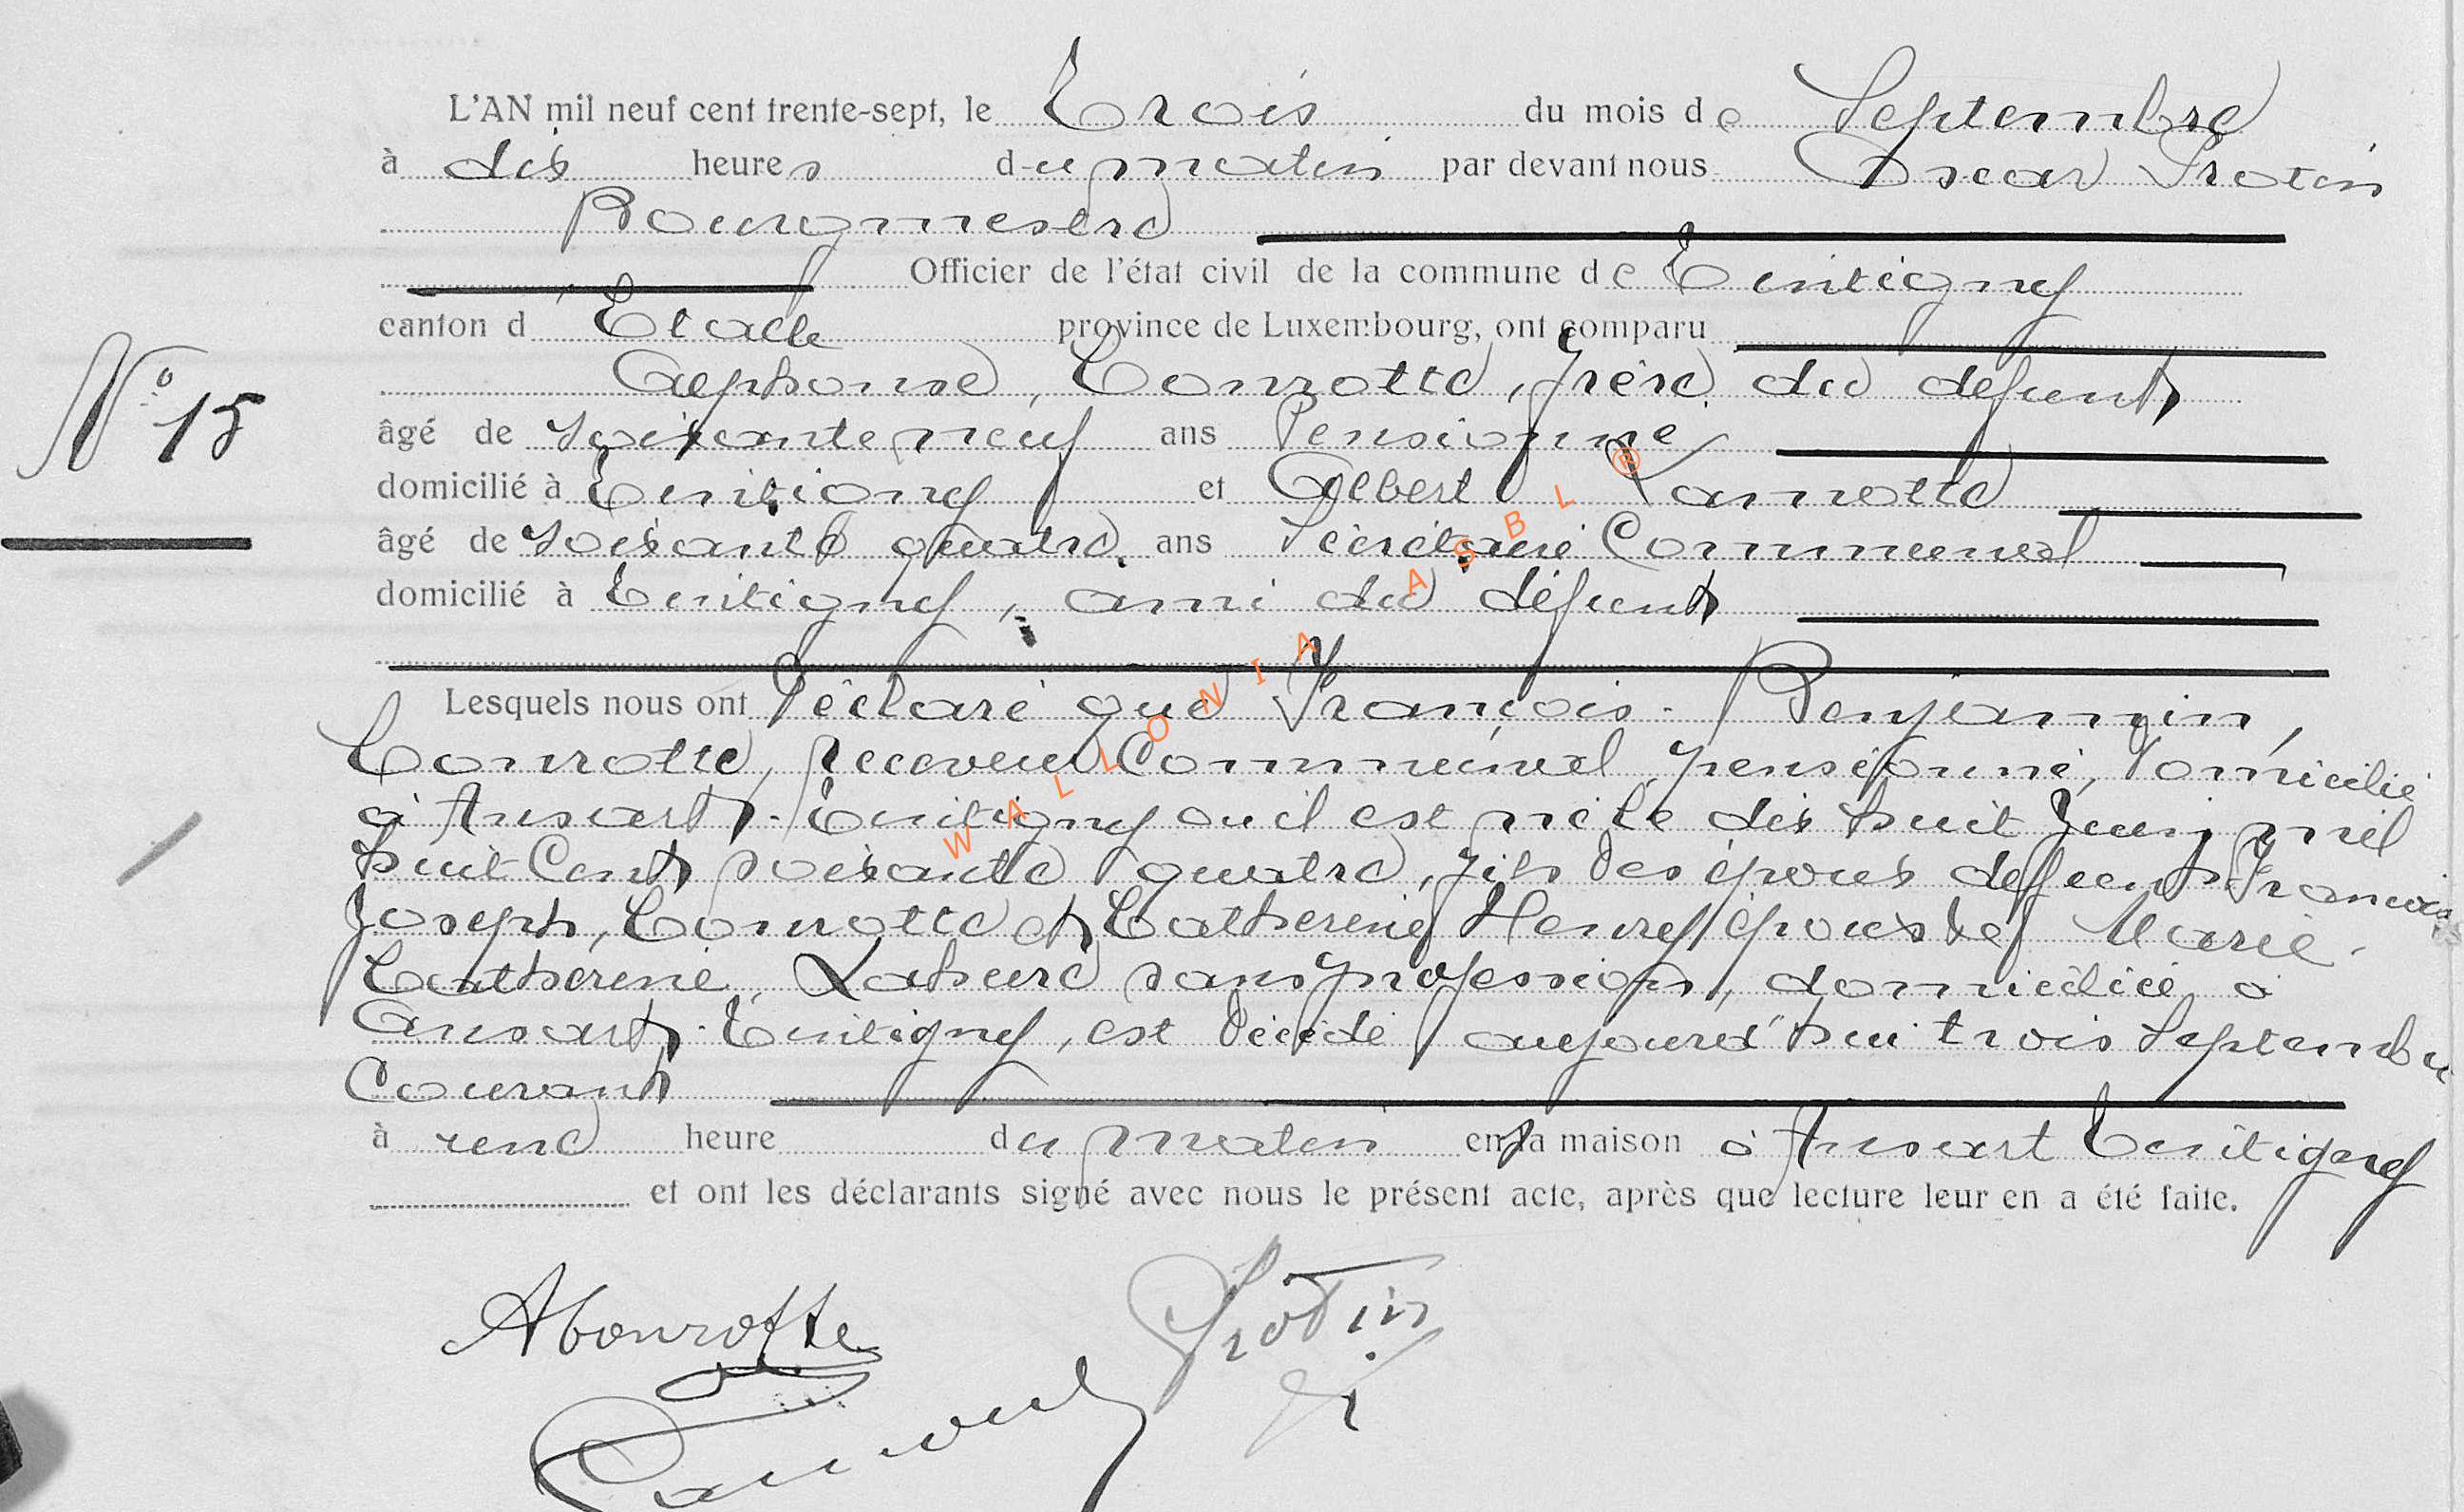 L'AN mil neuf cent trente-sept, le Trois du mois de Septembre
à dix heures du matin par devant nous Oscar Protin
Bourgmestre
Officier de l'état civil de la commune de Tintigny
canton d'Etalle province de Luxembourg, ont comparu
Alphonse, Conrotte, frère du défunt
âgé de soixante neuf ans Pensionné
domicilié à Tintigny et Albert Lannotte
âgé de soixante quatre ans Secrétaire Communal
domicilié à Tintigny, ami du défunt
N° 15
Lesquels nous ont Déclaré que François-Benjamin,
Conrotte, receveur Communal pensionné, domicilié
à Ansart-Tintigny ou il est né le dix huit Juin mil
huit Cent soixante quatre, fils des époux deffunts François
Joseph, Conrotte et Catherine Henry époux de Marie-
Catherine Lahure sans profession, domiciliée à
Ansart-Tintigny, est décédé aujourd'hui trois Septembre
Courant
à une heure du matin en la maison à Ansart Tintigny
et ont les déclarants signé avec nous le présent acte, après que lecture leur en a été faite.
AConrotte
Protin
WALLONIA ASBL ®